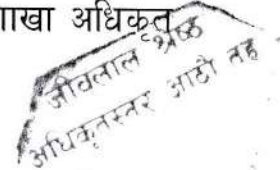 ाखा अधिकृत
जीवलाल श्रेष्ठ
अधिकृतस्तर आठौ तह